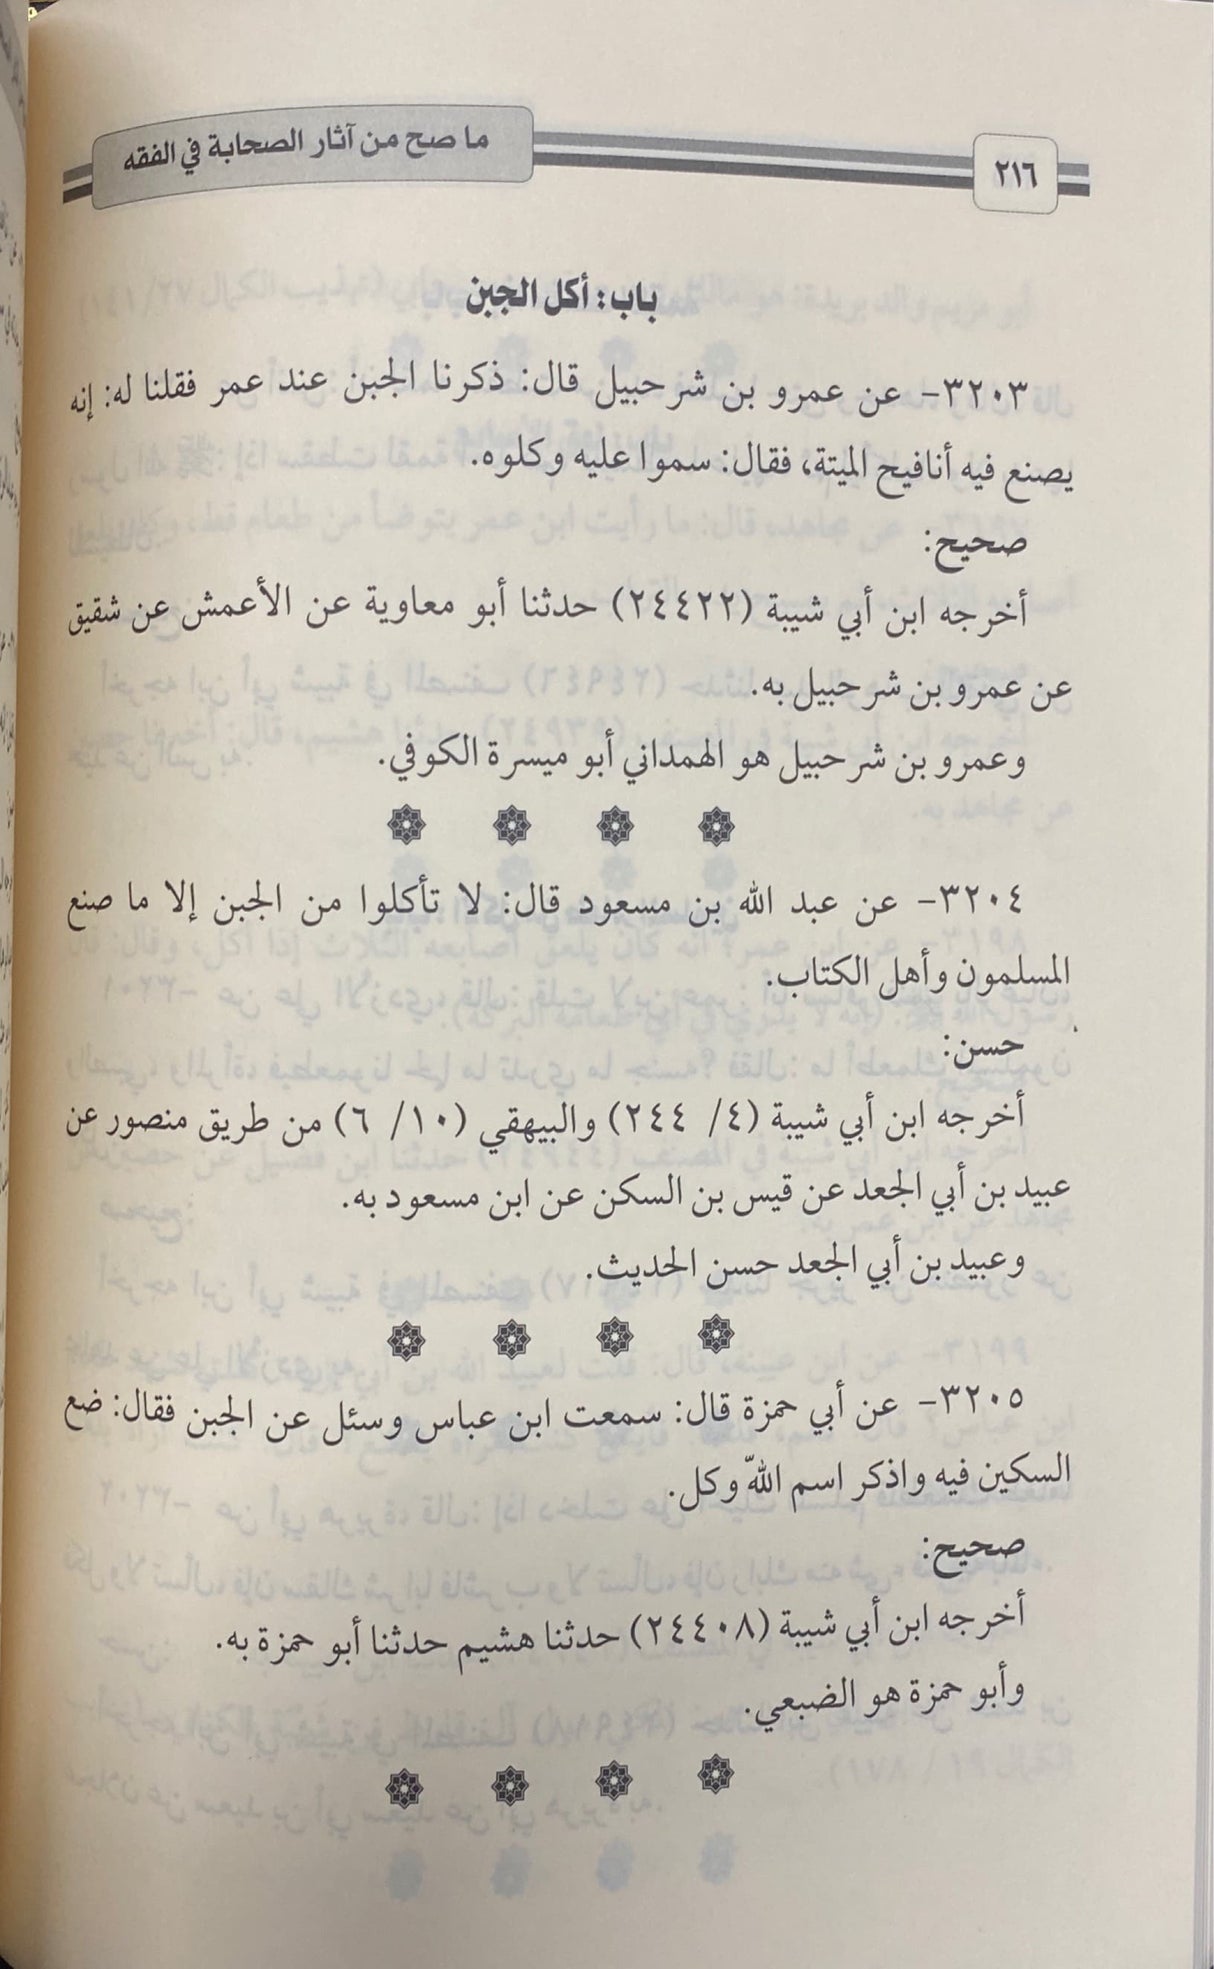 ما صح من آثار الصحابة في الفقه
٢١٦
باب: أكل الجبن
٣٢٠٣- عن عمرو بن شرحبيل قال: ذكرنا الجبن عند عمر فقلنا له: إنه
يصنع فيه أنافيح الميتة، فقال: سموا عليه وكلوه.
صحيح:
أخرجه ابن أبي شيبة (٢٤٤٢٢) حدثنا أبو معاوية عن الأعمش عن شقيق
عن عمرو بن شرحبيل به.
وعمرو بن شرحبيل هو الهمداني أبو ميسرة الكوفي.
٣٢٠٤- عن عبد الله بن مسعود قال: لا تأكلوا من الجبن إلا ما صنع
المسلمون وأهل الكتاب.
حسن:
أخرجه ابن أبي شيبة (٤/ ٢٤٤) والبيهقي (١٠/ ٦) من طريق منصور عن
عبيد بن أبي الجعد عن قيس بن السكن عن ابن مسعود به.
وعبيد بن أبي الجعد حسن الحديث.
٣٢٠٥- عن أبي حمزة قال: سمعت ابن عباس وسئل عن الجبن فقال: ضع
السكين فيه واذكر اسم اللهّ وكل.
صحيح:
أخرجه ابن أبي شيبة (٢٤٤٠٨) حدثنا هشيم حدثنا أبو حمزة به.
وأبو حمزة هو الضبعي.